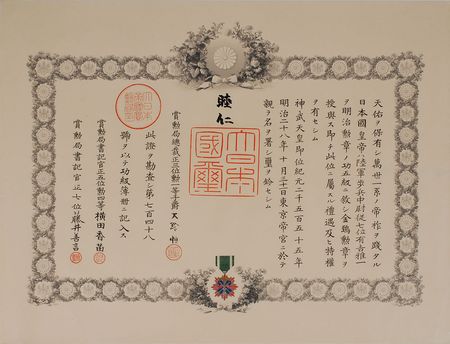 天佑ヲ保有シ萬世一系ノ帝祚ヲ踐タル
日本國皇帝ハ陸軍歩兵中尉從七位有吉雅一
ヲ明治勲章ノ功五級ニ敘シ金鵄勲章ヲ
授與ス即チ此位ニ屬スル禮遇及ヒ特權
ヲ有セシム
神武天皇即位紀元二千五百五十五年
明治二十八年十月三十日東京帝宮ニ於テ
親ラ名ヲ署シ璽ヲ鈐セシム
睦仁
大日本國璽
賞勲局總裁正三位勲一等子爵大給恒
此證ヲ勘査シ第七百四十八
號ヲ以テ功級簿冊ニ記入ス
賞勲局書記官正五位勲四等横田香苗
賞勲局書記官正七位藤井善言